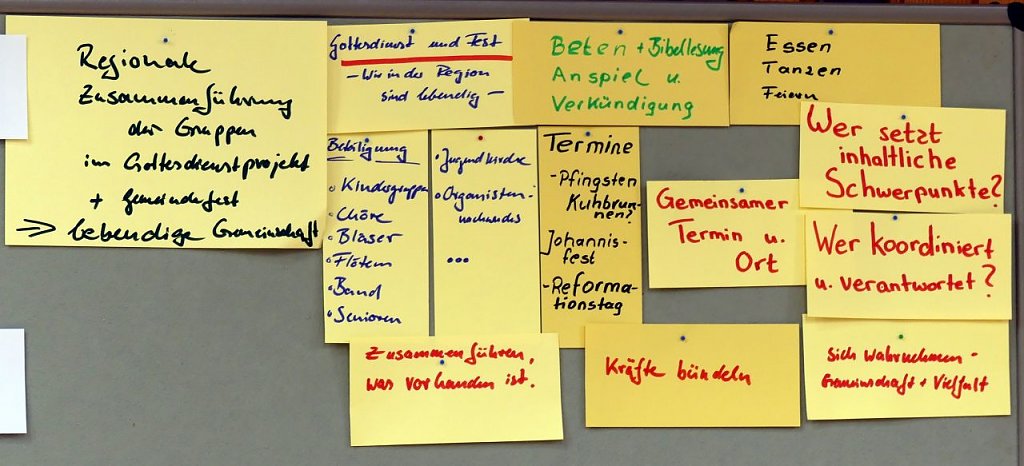 Regionale
Zusammenführung
der Gruppen
im Gottesdienstprojekt
+ Gemeindefest
=> lebendige Gemeinschaft
Gottesdienst und Fest
- Wir in der Region
sind lebendig -
Beten + Bibellesung
Anspiel u.
Verkündigung
Essen
Tanzen
Feiern
Beteiligung
• Kindergruppen
• Chöre
• Bläser
• Flöten
• Band
• Senioren
• Jugendkirche
• Organisten-
nachwuchs
• • •
Termine
- Pfingsten
Kuhbrun-
nen?
Johannis-
fest
- Reforma-
tionstag
Gemeinsamer
Termin u.
Ort
Wer setzt
inhaltliche
Schwerpunkte?
Wer koordiniert
u. verantwortet?
Zusammenführen,
was vorhanden ist.
Kräfte bündeln
Sich wahrnehmen -
Gemeinschaft + Vielfalt